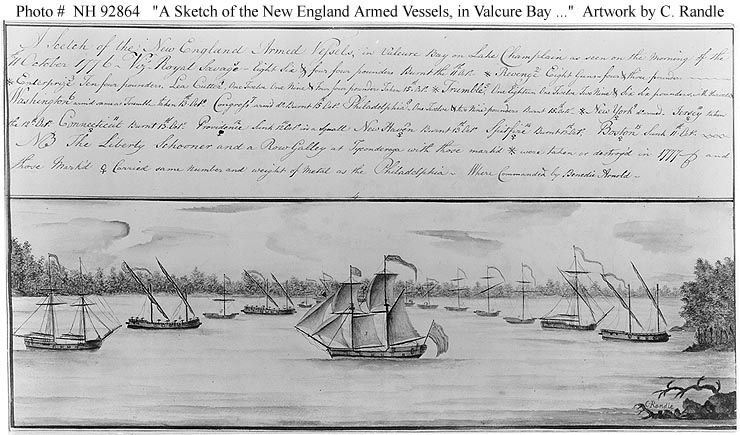 Photo # NH 92864 "A Sketch of the New England Armed Vessels, in Valcure Bay ..." Artwork by C. Randle
A Scetch of the New England Armed Vessels, in Valcure Bay on Lake Champlain as seen on the morning of the
11 October 1776 Viz. Royal Savage Eight Six & four four pounders Burnt the 11th Oct. Revenge Eight four & three pounders
Enterprize Ten four pounders. Lee Cutter One Twelve One Nine & four four pounders Taken 13 Oct. Trumble One Eighteen One Twelve Two Nine & Six Six pounders
Washington armd same as Trumble Taken 13th Oct. Congress armd do. Burnt 13th Oct. Philadelphia One Twelve & two Nine pounders New York armd Jersey taken
the 12th Oct. Connecticut Burnt 13th Oct. Providence Sunk 12th Oct. New Haven Burnt 13th Oct. Spitfire Burnt 13th Oct. Boston Sunk
NB The Liberty Schooner and a Row Galley at Ticonderoga with those mark'd were taken or destroyd in 1777 and
those Mark'd Carried same number and weight of Metal as the Philadelphia - Where Commanded by Benedict Arnold
C Randle